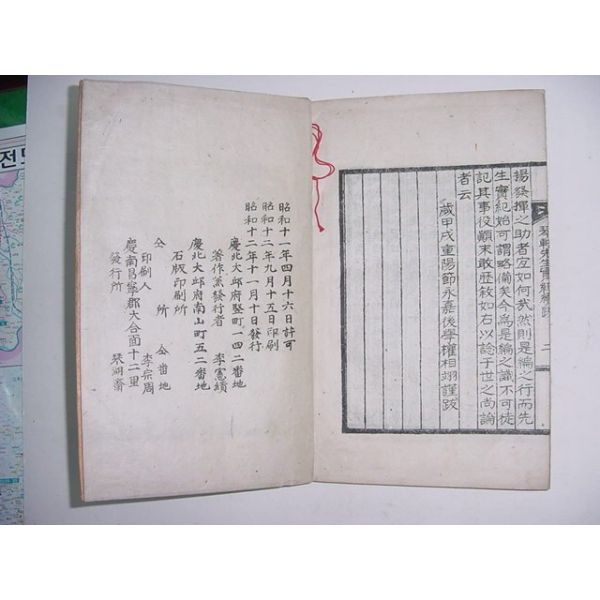 揚發揮之助者宜如何哉然則是編之行而先
生實紀始可謂略備矣今爲是編之識不可徒
記其事役顚末敢歷敍如右以諗于世之尚論
者云
歲甲戌重陽節永嘉後學權相翊謹跋
二
昭和十一年四月十六日許可
昭和十二年九月十五日印刷
昭和十二年十一月十日發行
慶北大邱府竪町一四二番地
著作兼發行者 李憲績
慶北大邱府南山町五二番地
石版印刷所
仝所 仝番地
印刷人 李宗周
慶南昌寧郡大合面十二里
發行所
전도